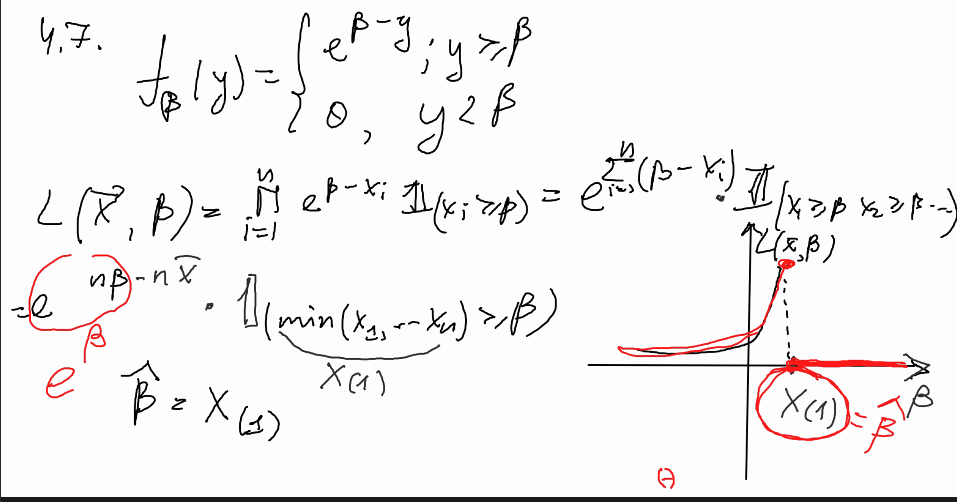 4.7.
f_β(y) = { e^{β-y}; y ≥ β
0, y < β
L(X⃗, β) = ∏_{i=1}^{n} e^{β-x_i} 𝟙(x_i ≥ β) = e^{∑_{i=1}^{n}(β-x_i)} · 𝟙(x_1 ≥ β x_2 ≥ β ...)
= e^{nβ-nX̄} · 𝟙(min(x_1, ... x_n) ≥ β)
X_(1)
e^β
β̂ = X_(1)
L(x⃗, β)
X_(1) = β̂
β